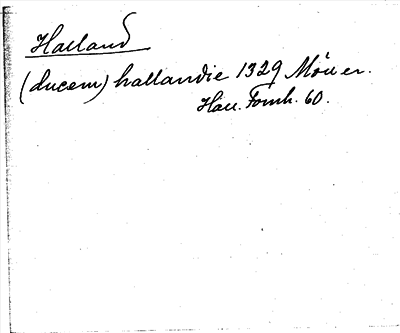 Halland
(ducem) hallandie 1329 Möller.
Hall. Fornh. 60.